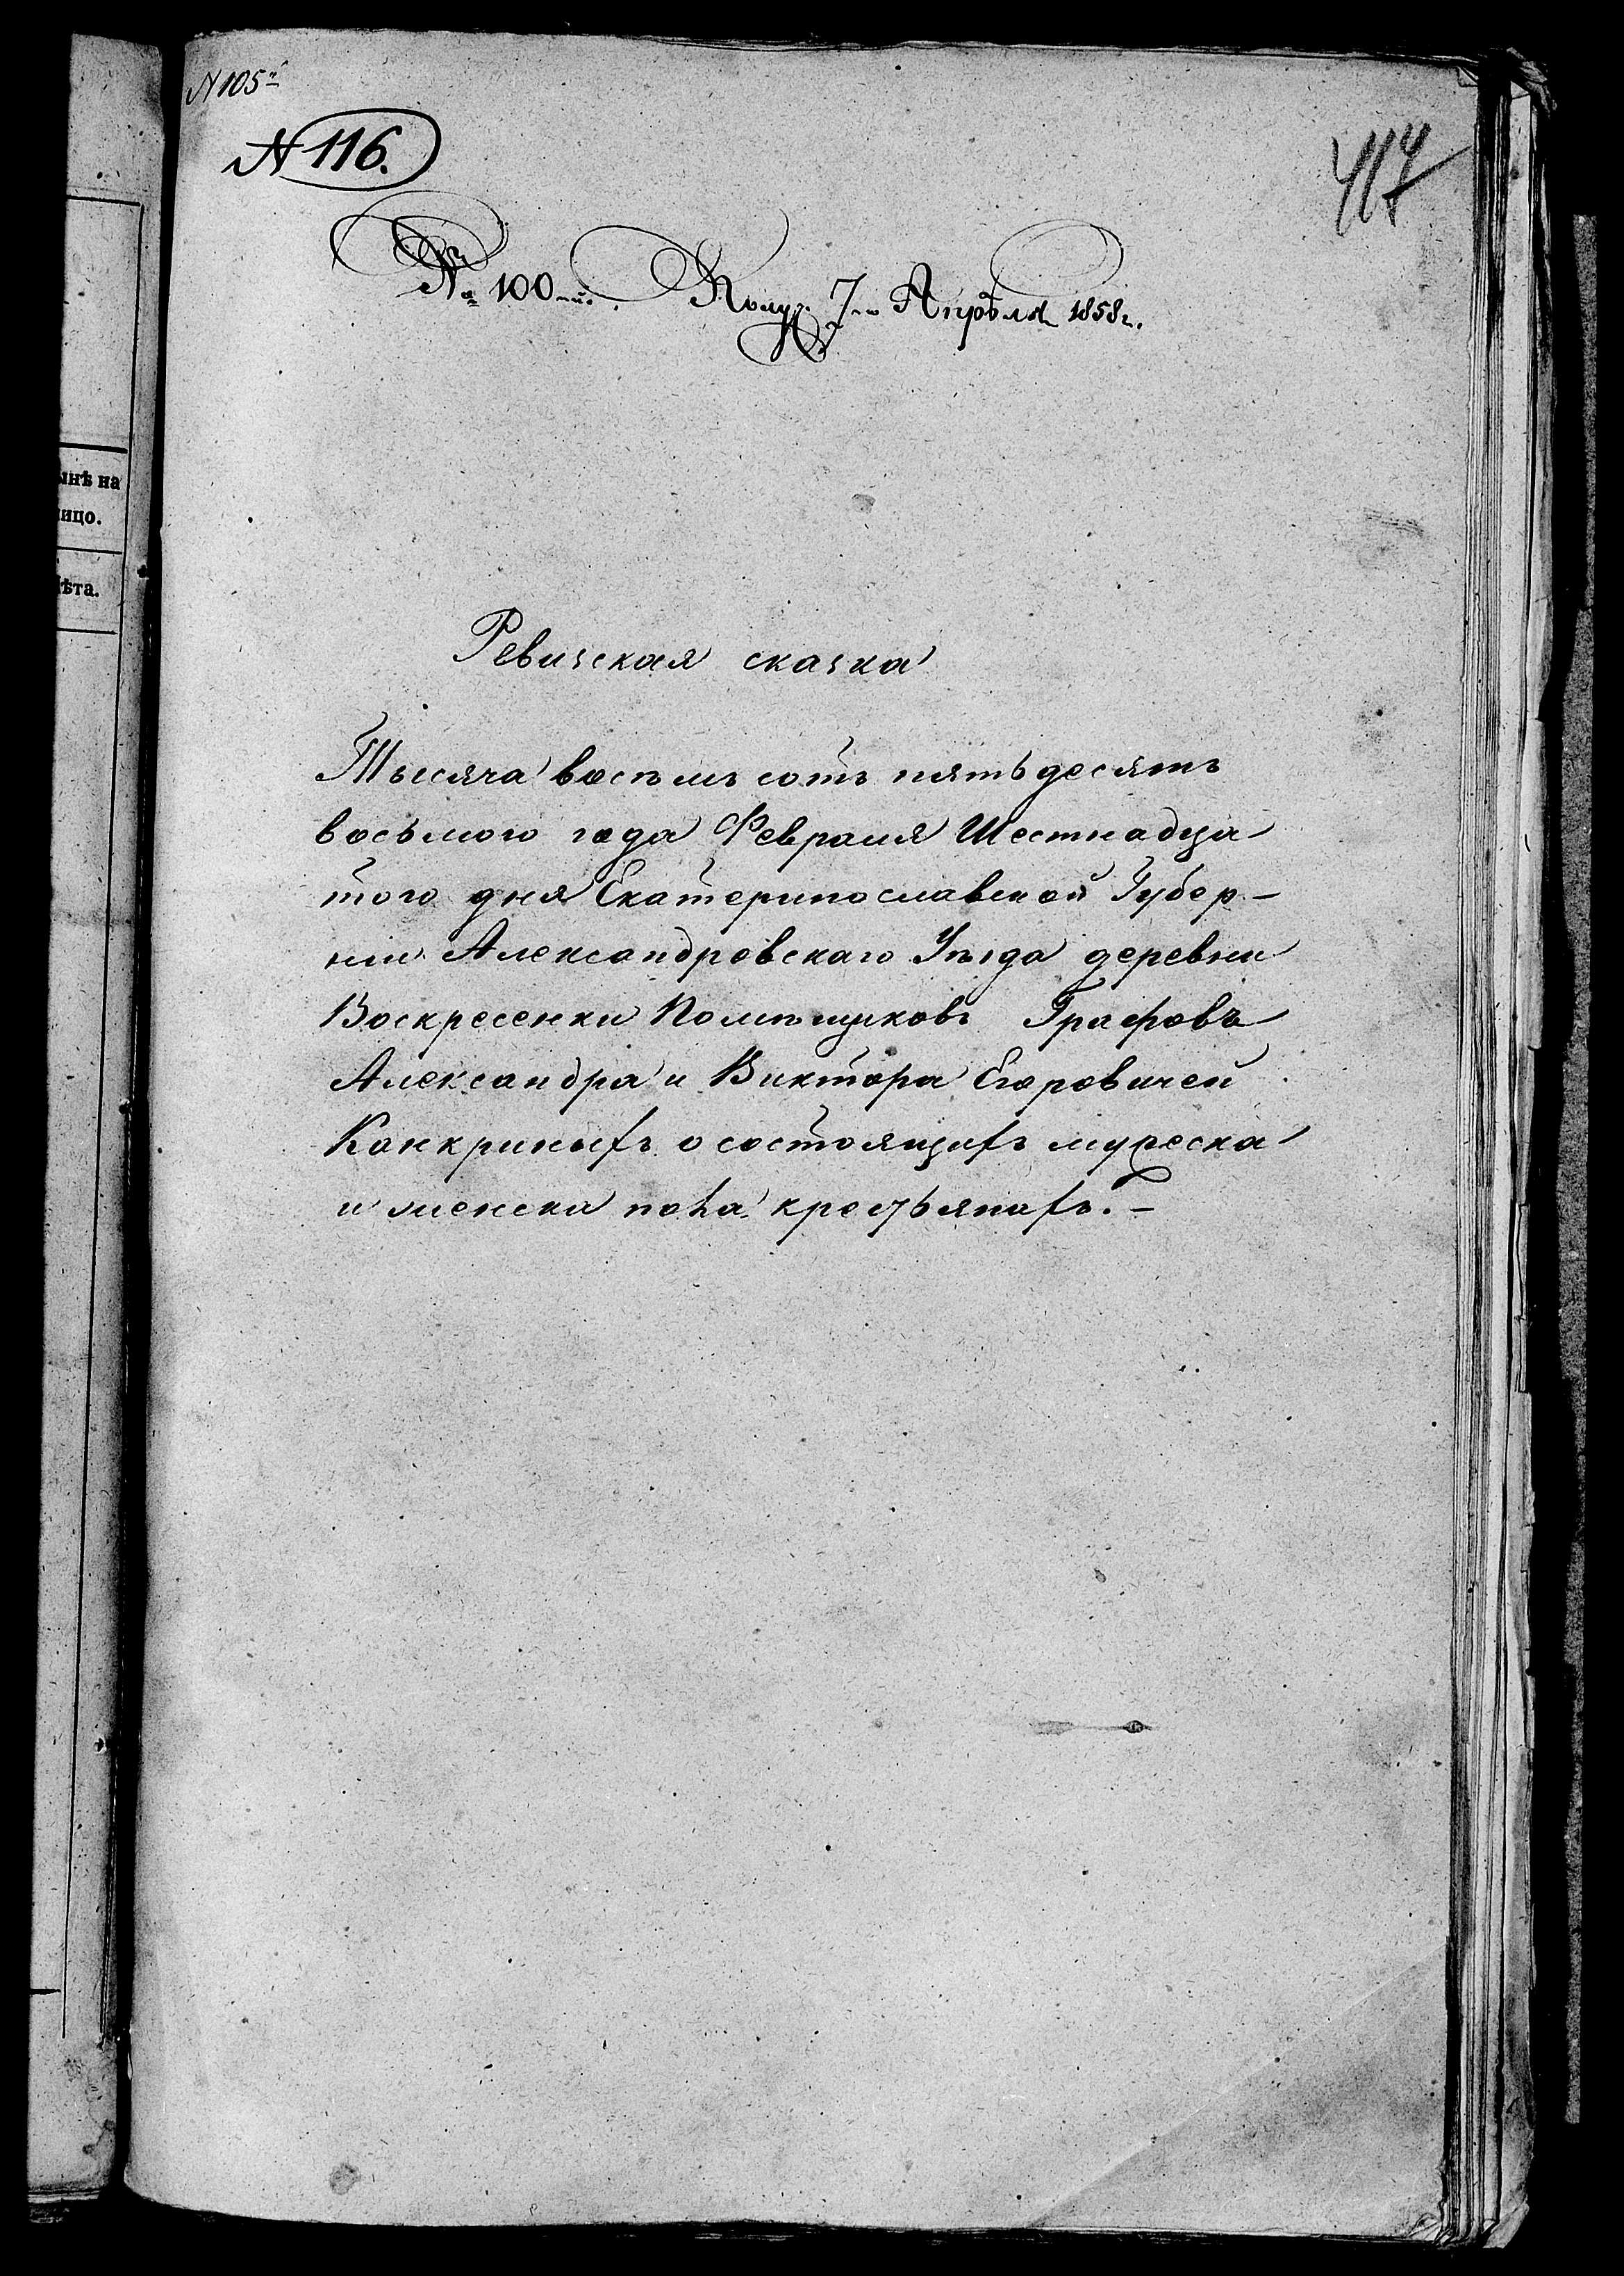 N 105й
N 116.
417
№ 100й. Получ. 7го Апрѣля 1858 г.
ынѣ на
лицо.
Лѣта.
Ревизская сказка
Тысяча восемь сотъ пятьдесятъ
восьмого года Февраля Шестнадца
того дня Екатеринославской Губер-
нiи Александровскаго Уѣзда деревни
Воскресенки Помѣщиковъ Графовъ
Александра и Виктора Егоровичей
Канкриныхъ о состоящихъ мужеска
и женска пола крестьянахъ. -